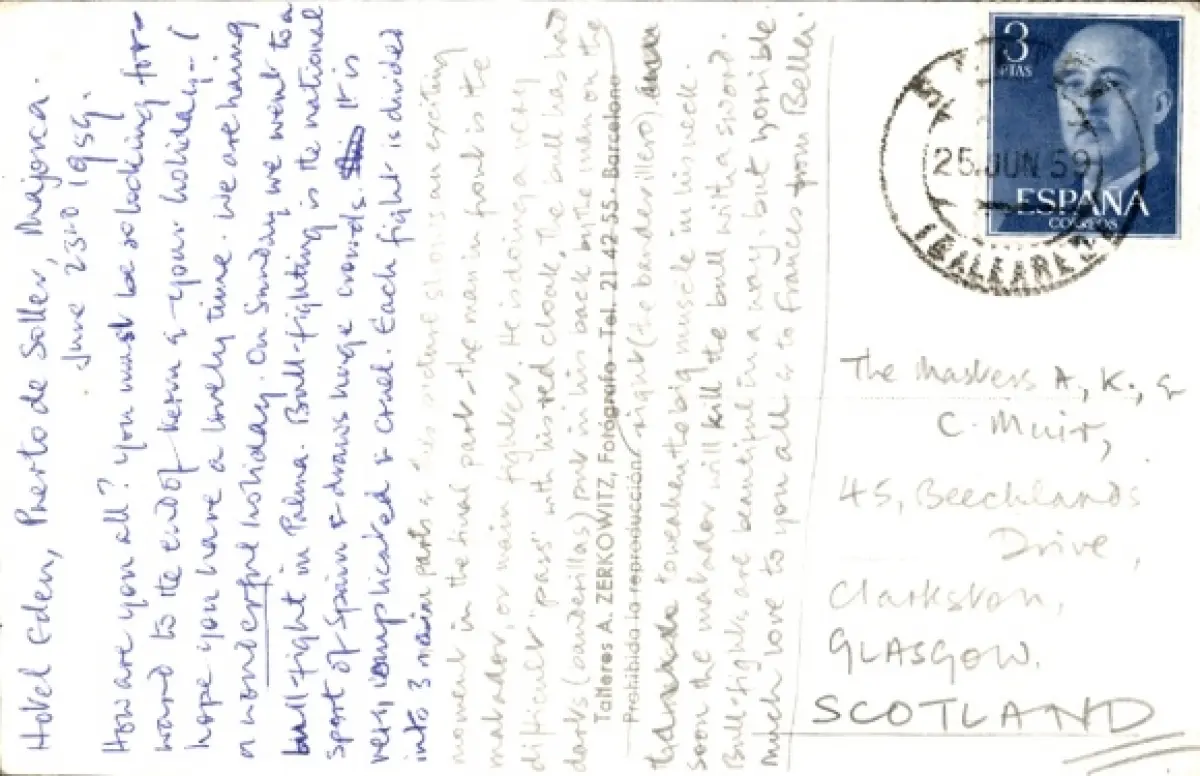 Hotel Eden, Puerto de Soller, Majorca.
June 23rd 1959.
How are you all? You must be so looking for-
ward to the end of term & your holidays - I
hope you have a lovely time. We are having
a wonderful holiday. On Sunday we went to a
bull-fight in Palma. Bull-fighting is the national
sport of Spain & draws huge crowds. It is
very complicated & cruel. Each fight is divided
into 3 main parts & this picture shows an exciting
moment in the final part - the man in front is the
matador, or main fighter. He is doing a very
difficult "pass" with his red cloak, the bull has had
darts (banderillas) put in his back by the man on the
Talleres A. ZERKOWITZ, Fotógrafo - Tel. 21 42 55 - Barcelona
Prohibida la reproducción
right (the banderillero),
to weaken the big muscle in his neck.
Soon the matador will kill the bull with a sword.
Bull-fights are beautiful in a way, but horrible.
Much love to you all & to Frances from Belle.
3
PTAS
25. JUN. 59
ESPAÑA
CORREOS
(BALEARES)
The Masters A, K, &
C. Muir,
45, Beechlands
Drive,
Clarkston,
GLASGOW.
SCOTLAND